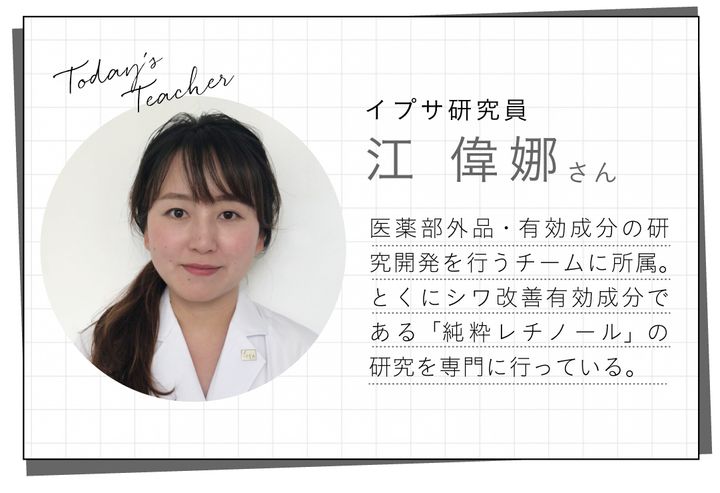 Today's
Teacher
イプサ研究員
江 偉娜さん
医薬部外品・有効成分の研
究開発を行うチームに所属。
とくにシワ改善有効成分で
ある「純粋レチノール」の
研究を専門に行っている。